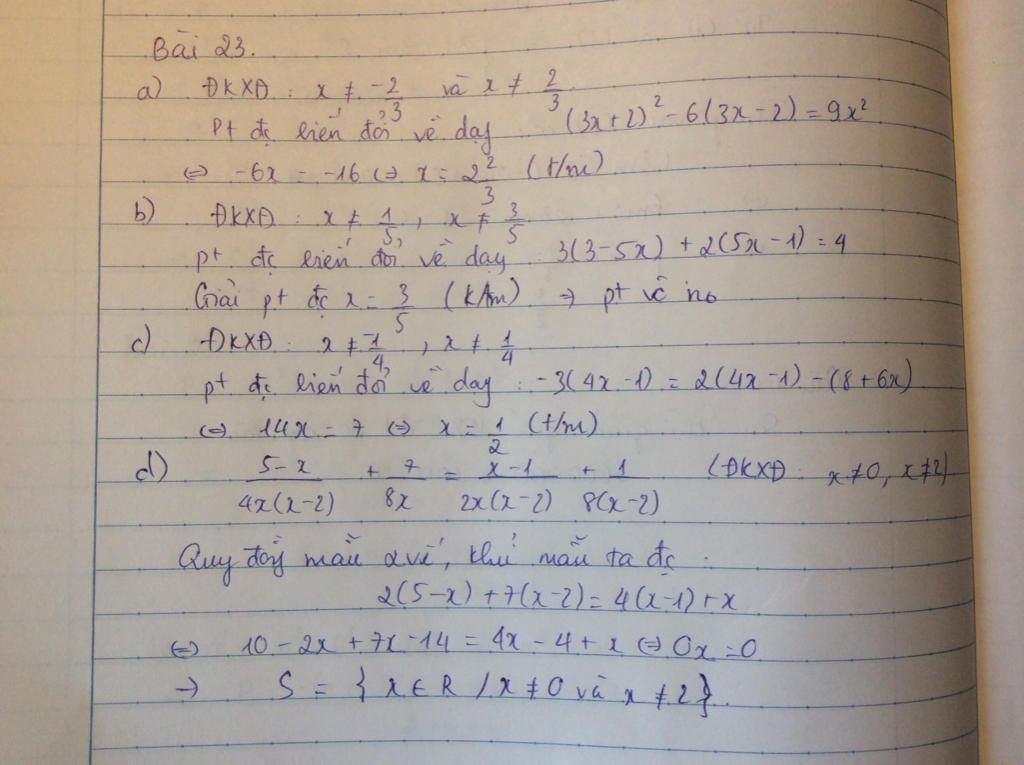 Bài 23.
a) ĐKXĐ : x ≠ -2/3 và x ≠ 2/3
Pt đc biến đổi về dạng (3x+2)² - 6(3x-2) = 9x²
⇔ -6x = -16 ⇔ x = 2 2/3 (t/m)
b) ĐKXĐ : x ≠ 1/5, x ≠ 3/5
pt đc biến đổi về dạng 3(3-5x) + 2(5x-1) = 4
Giải pt đc x = 3/5 (ktm) ⇒ pt vô no
c) ĐKXĐ : x ≠ -1/4, x ≠ 1/4
pt đc biến đổi về dạng : -3(4x-1) = 2(4x-1) - (8+6x)
⇔ 14x = 7 ⇔ x = 1/2 (t/m)
d) (5-x)/(4x(x-2)) + 7/(8x) = (x-1)/(2x(x-2)) + 1/(8(x-2)) (ĐKXĐ : x≠0, x≠2)
Quy đồng mẫu 2 vế, khử mẫu ta đc :
2(5-x) + 7(x-2) = 4(x-1) + x
⇔ 10 - 2x + 7x - 14 = 4x - 4 + x ⇔ 0x = 0
→ S = {x ∈ R / x ≠ 0 và x ≠ 2}